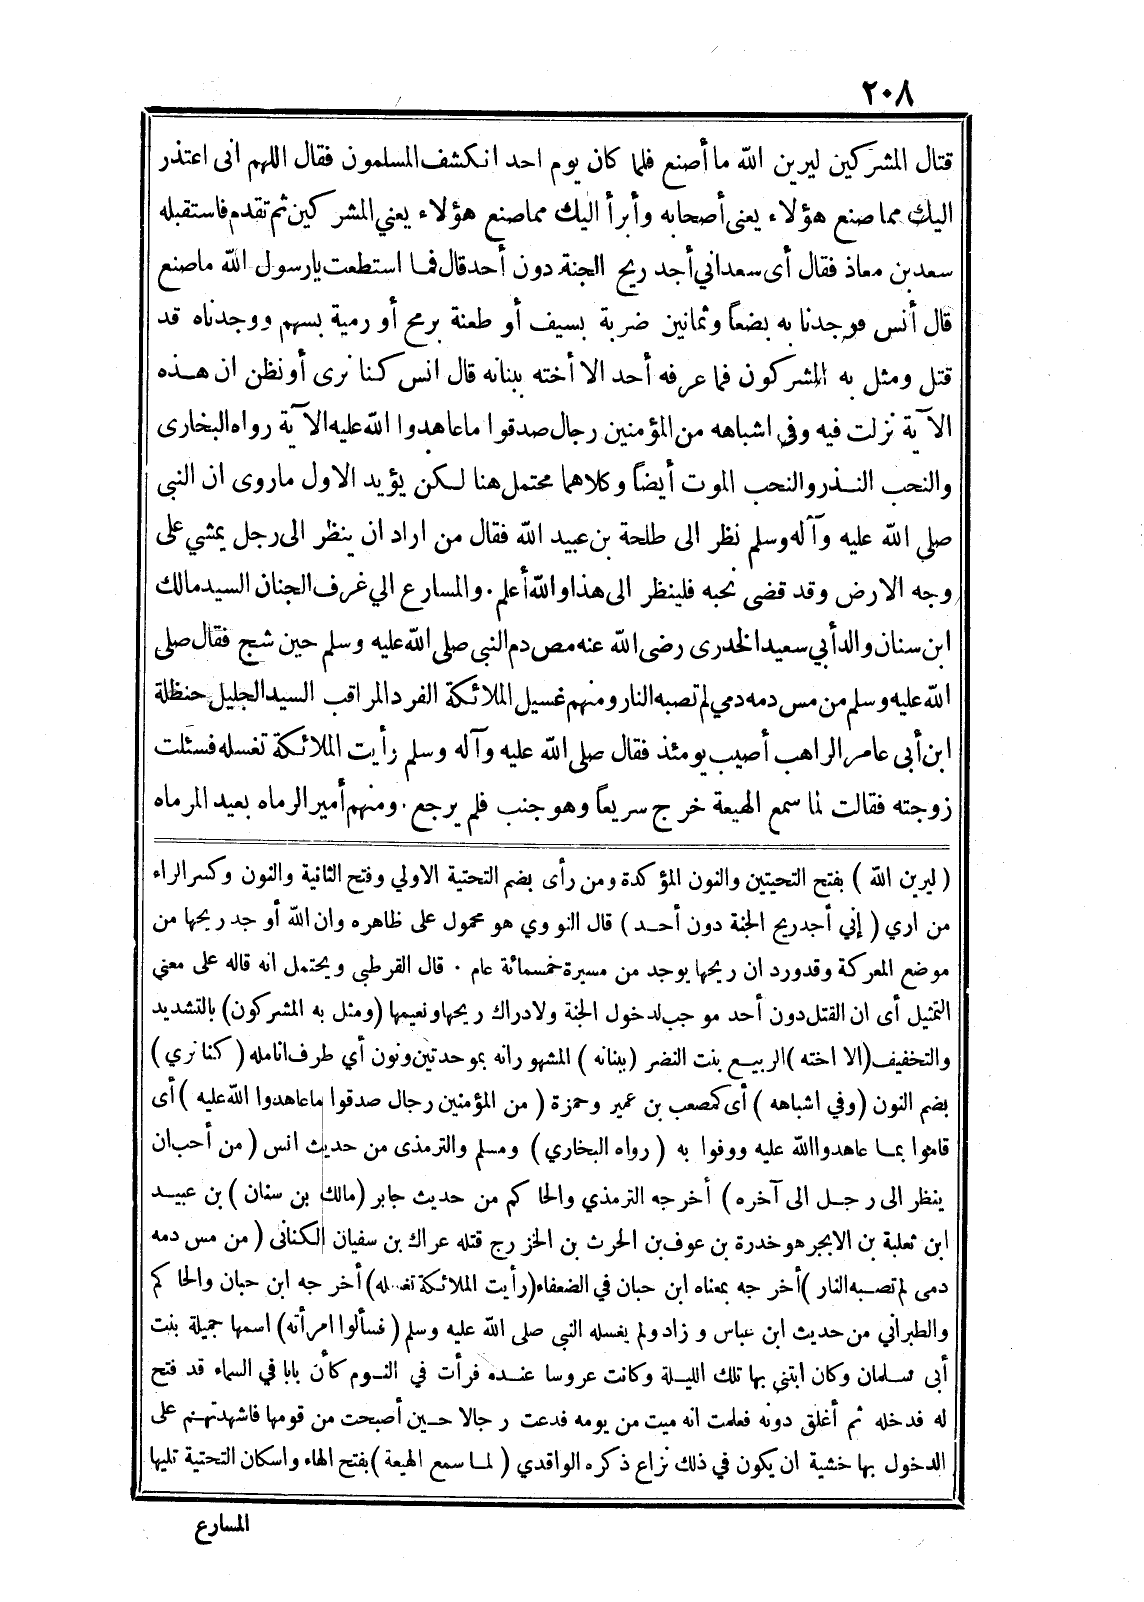 ٢٠٨
قتال المشركين ليرين الله ما أصنع فلما كان يوم احد انكشف المسلمون فقال اللهم انى اعتذر
اليك مما صنع هؤلاء يعنى أصحابه وأبرأ اليك مما صنع هؤلاء يعني المشركين ثم تقدم فاستقبله
سعد بن معاذ فقال أى سعد اني أجد ريح الجنة دون أحد قال فما استطعت يا رسول الله ما صنع
قال أنس فوجدنا به بضعاً وثمانين ضربة بسيف أو طعنة برمح أو رمية بسهم ووجدناه قد
قتل ومثل به المشركون فما عرفه أحد الا أخته ببنانه قال انس كنا نرى أو نظن ان هذه
الآية نزلت فيه وفي اشباهه من المؤمنين رجال صدقوا ما عاهدوا الله عليه الآية رواه البخارى
والنحب النذر والنحب الموت أيضاً وكلاهما محتمل هنا لكن يؤيد الاول ما روى ان النبى
صلي الله عليه وآله وسلم نظر الى طلحة بن عبيد الله فقال من اراد ان ينظر الى رجل يمشي على
وجه الارض وقد قضى نحبه فلينظر الى هذا والله أعلم . والمسارع الي غرف الجنان السيد مالك
ابن سنان والد أبي سعيد الخدرى رضى الله عنه مص دم النبى صلى الله عليه وسلم حين شج فقال صلى
الله عليه وسلم من مس دمه دمي لم تصبه النار ومنهم غسيل الملائكة الفرد المراقب السيد الجليل حنظلة
ابن أبى عامر الراهب أصيب يومئذ فقال صلى الله عليه وآله وسلم رأيت الملائكة تغسله فسئلت
زوجته فقالت لما سمع الهيعة خرج سريعاً وهو جنب فلم يرجع . ومنهم أمير الرماه بعيد المرماه
( ليرين الله ) بفتح التحيتين والنون المؤكدة ومن رأى بضم التحتية الاولي وفتح الثانية والنون وكسر الراء
من اري ( إني أجد ريح الجنة دون أحد ) قال النووي هو محمول على ظاهره وان الله أوجد ريحها من
موضع المعركة وقد ورد ان ريحها يوجد من مسيرة خمسمائة عام . قال القرطبى ويحتمل انه قاله على معني
التمثيل أى ان القتل دون أحد موجب لدخول الجنة ولادراك ريحها ونعيمها (ومثل به المشركون) بالتشديد
والتخفيف (الا اخته) الربيع بنت النضر (ببنانه) المشهور انه بموحدتين ونون أي طرف انامله (كنا نري)
بضم النون (وفي اشباهه) أى كمصعب بن عمير وحمزة (من المؤمنين رجال صدقوا ما عاهدوا الله عليه) أى
قاموا بما عاهدوا الله عليه ووفوا به (رواه البخاري) ومسلم والترمذى من حديث انس (من أحب ان
ينظر الى رجل الى آخره) أخرجه الترمذي والحاكم من حديث جابر (مالك بن سنان) بن عبيد
ابن ثعلبة بن الابجر هو خدرة بن عوف بن الحرث بن الخزرج قتله عراك بن سفيان الكنانى (من مس دمه
دمى لم تصبه النار) أخرجه بمعناه ابن حبان في الضعفاء (رأيت الملائكة تغسله) أخرجه ابن حبان والحاكم
والطبراني من حديث ابن عباس وزاد ولم يغسله النبى صلى الله عليه وسلم (فسألوا امرأته) اسمها جميلة بنت
أبى سلمان وكان ابتنى بها تلك الليلة وكانت عروسا عنده فرأت في النوم كأن بابا في السماء قد فتح
له فدخله ثم أغلق دونه فعلمت انه ميت من يومه فدعت رجالا حين أصبحت من قومها فاشهدتهم على
الدخول بها خشية ان يكون في ذلك نزاع ذكره الواقدي (لما سمع الهيعة) بفتح الهاء واسكان التحتية تليها
المسارع